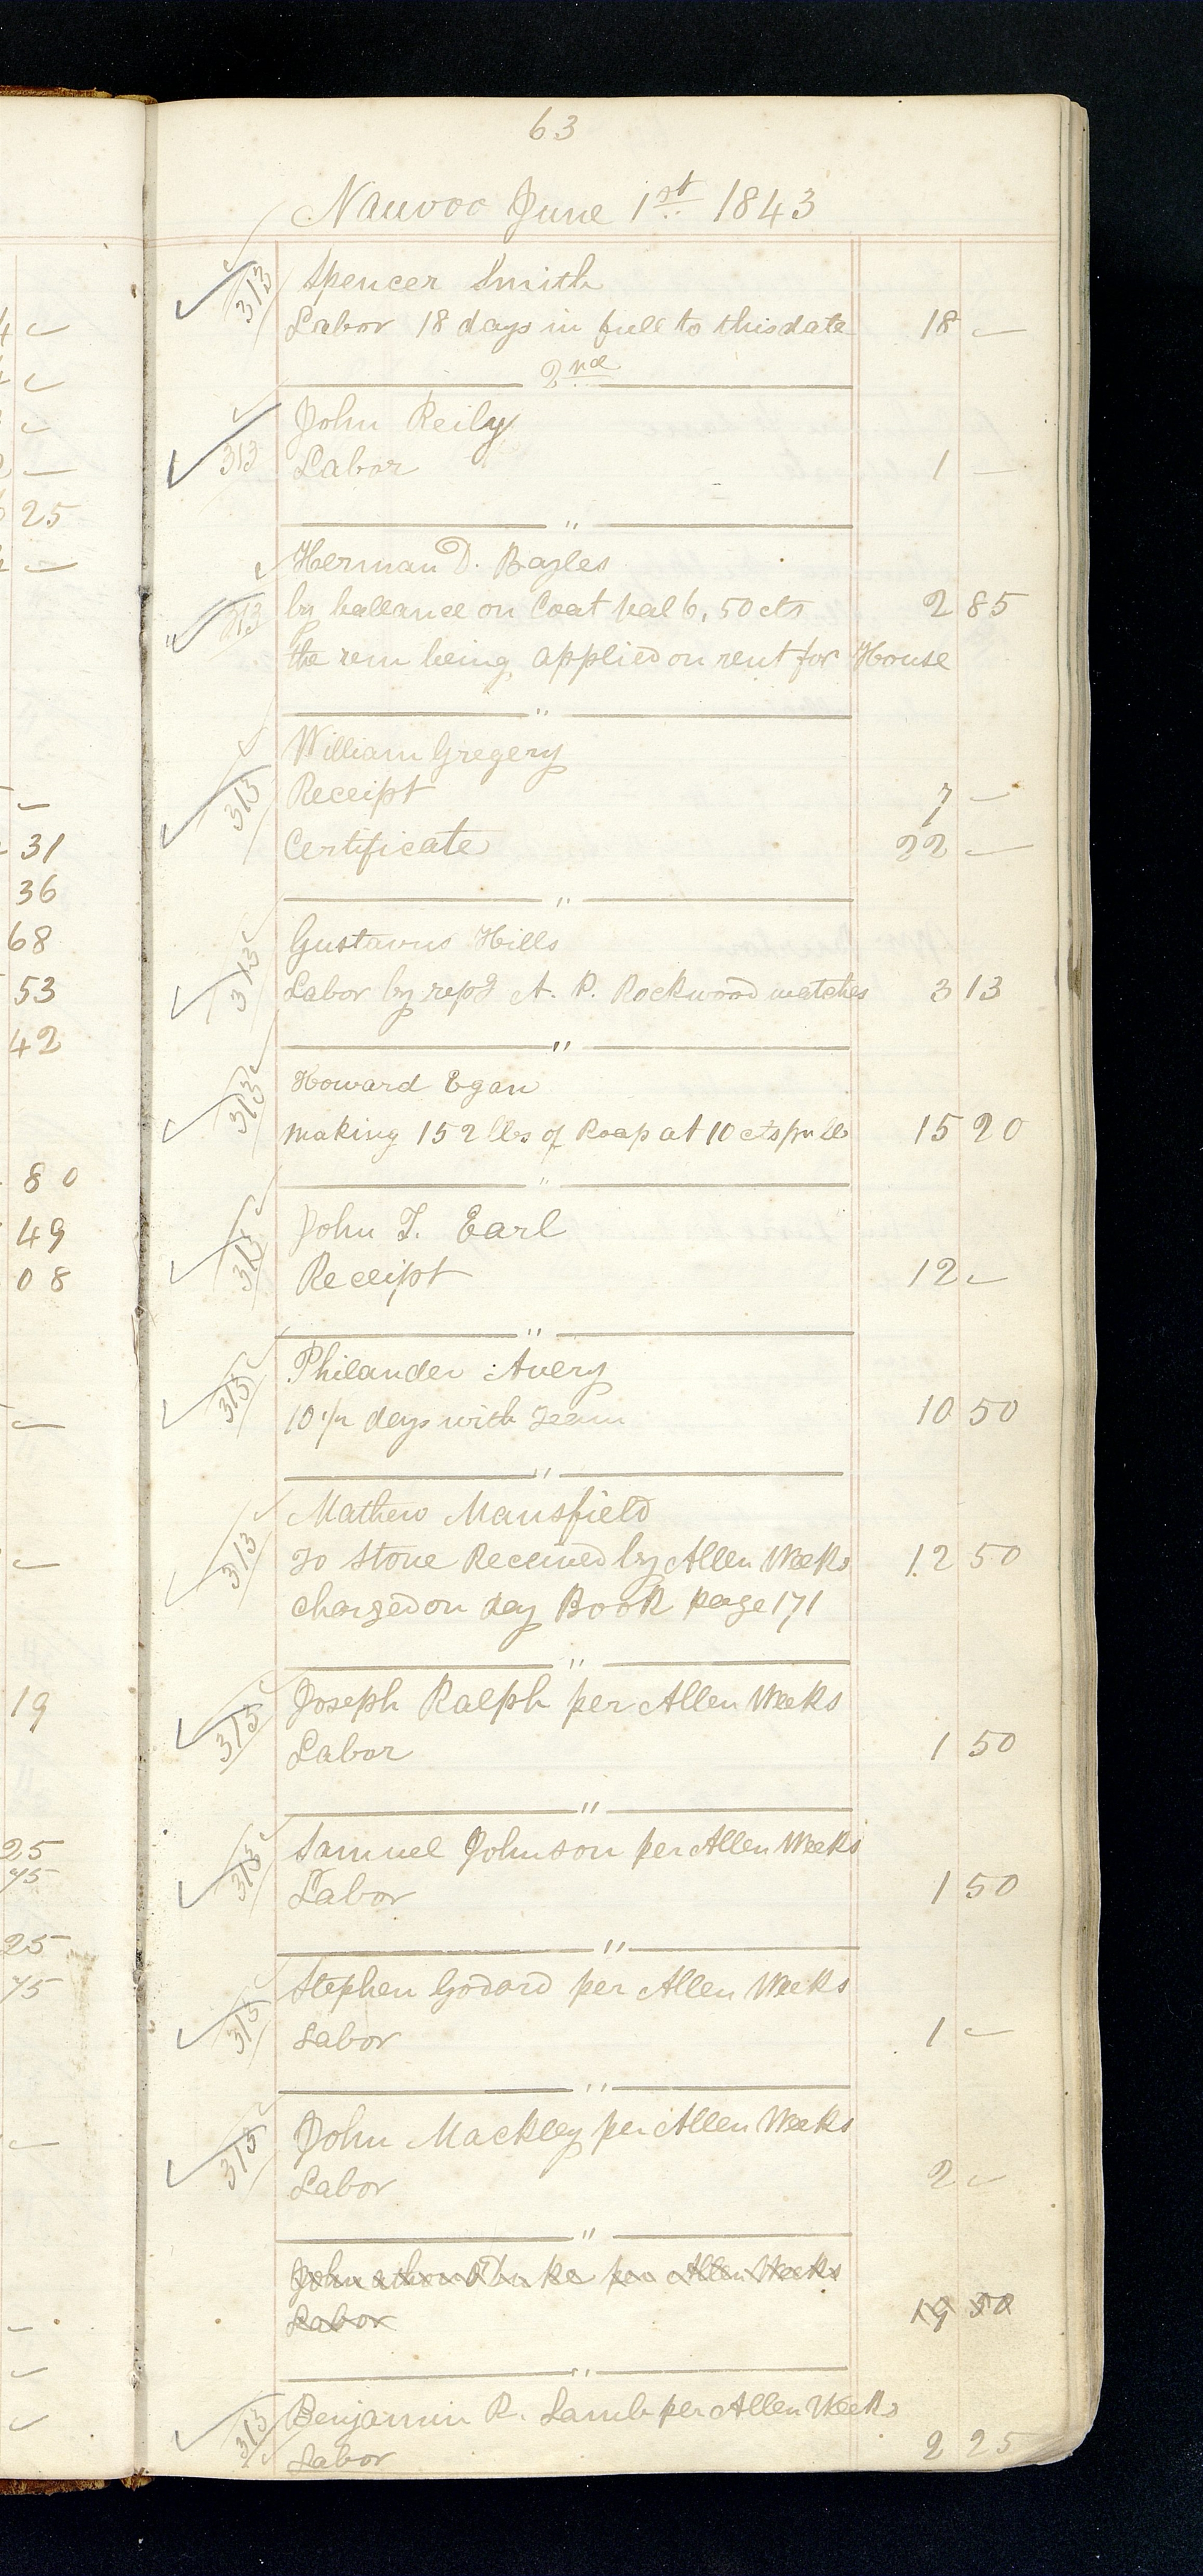 63
Nauvoo June 1st 1843
313 Spencer Smith
Labor 18 days in full to this date 18 —
2nd
John Reily
313 Labor 1 —
"
Herman D. Bayles
313 by ballance on Coat val 6,50 cts 2 85
the rem being applied on rent for House
"
William Gregery
313 Receipt 7 —
Certificate 22 —
"
Gustavus Hills
313 Labor by rep A. P. Rockwood watches 3 13
"
Howard Egan
313 making 152 lbs of Roap at 10 cts pr lb 15 20
"
John T. Earl
313 Receipt 12 —
"
Philander Avery
313 10 1/2 days with Team 10 50
"
Mathew Mansfield
313 To Stone Received by Allen Weeks 12 50
charged on day Book page 171
"
Joseph Ralph per Allen Weeks
313 Labor 1 50
"
Samuel Johnson per Allen Weeks
313 Labor 1 50
"
Stephen Godard per Allen Weeks
313 Labor 1 —
"
John Mackley per Allen Weeks
313 Labor 2 —
"
per Allen Weeks
Labor 19 50
"
Benjamin R. Lamb per Allen Weeks
313 Labor 2 25
25
31
36
68
53
42
80
49
08
19
25
75
25
75